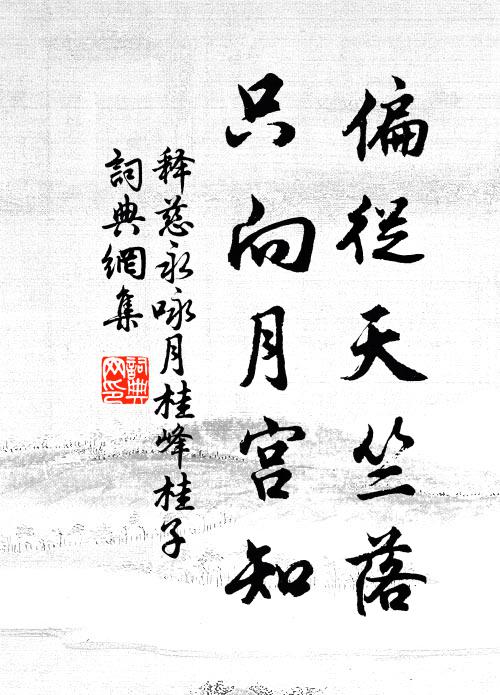 偏從天竺落
只向月宫知
释慈永咏月桂峰桂子
詞典網集
詞典網印